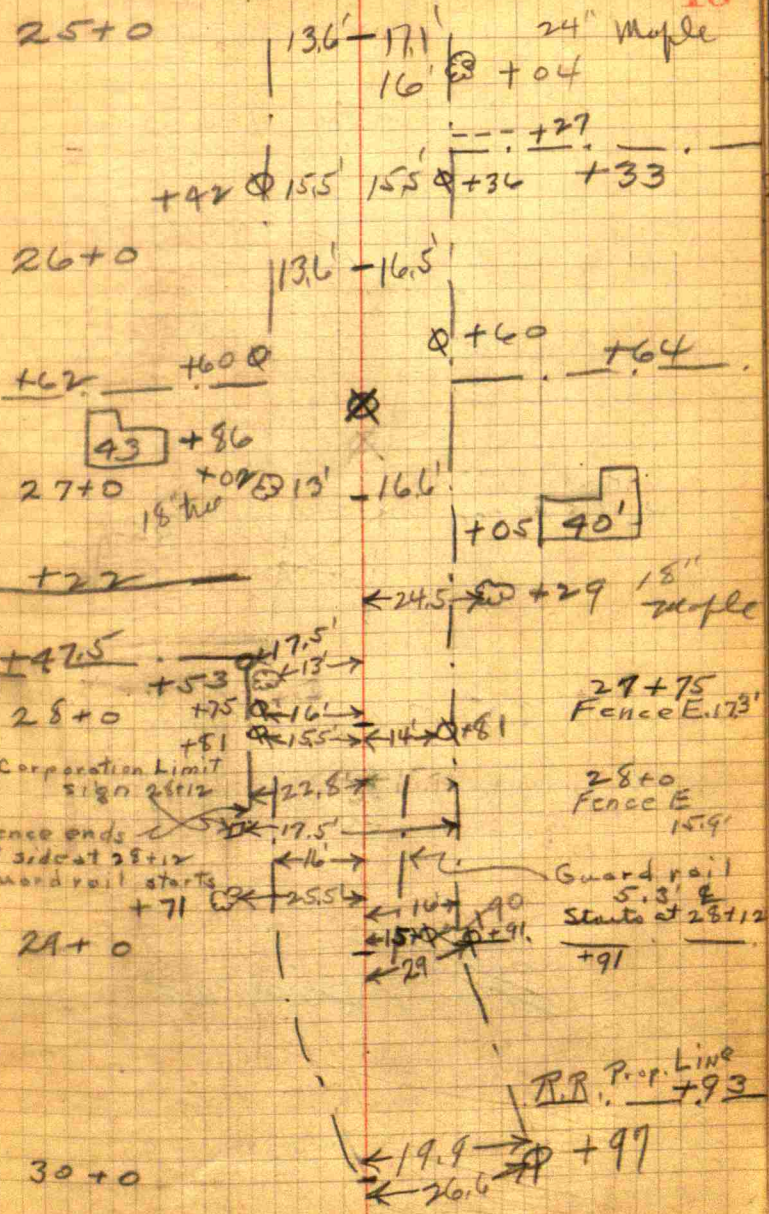 25+0 13.6' 17.1' 24" Maple
16' +04
+27
+42 15.5' 15.5' +36 +33
26+0 13.6' 16.5'
+60 +64
+62 +60
43 +86
27+0 +02 13' 16.6'
18" tree
+05 40'
+22
24.5 +29 18" Maple
+47.5 17.5'
+53 13' 27+75
28+0 +75 16' Fence E. 17.3'
+81 15.5' 14' +81
Corporation Limit 28+0
sign 28+12 22.8' Fence E
15.9'
17.5'
side at 28+12 16' Guard rail
starts 5.3'
+71 25.5' 16' 90 Starts at 28+12
29+0 15 +91
+91
29
R.R. Prop. Line
+93
19.9 +97
30+0 26.6